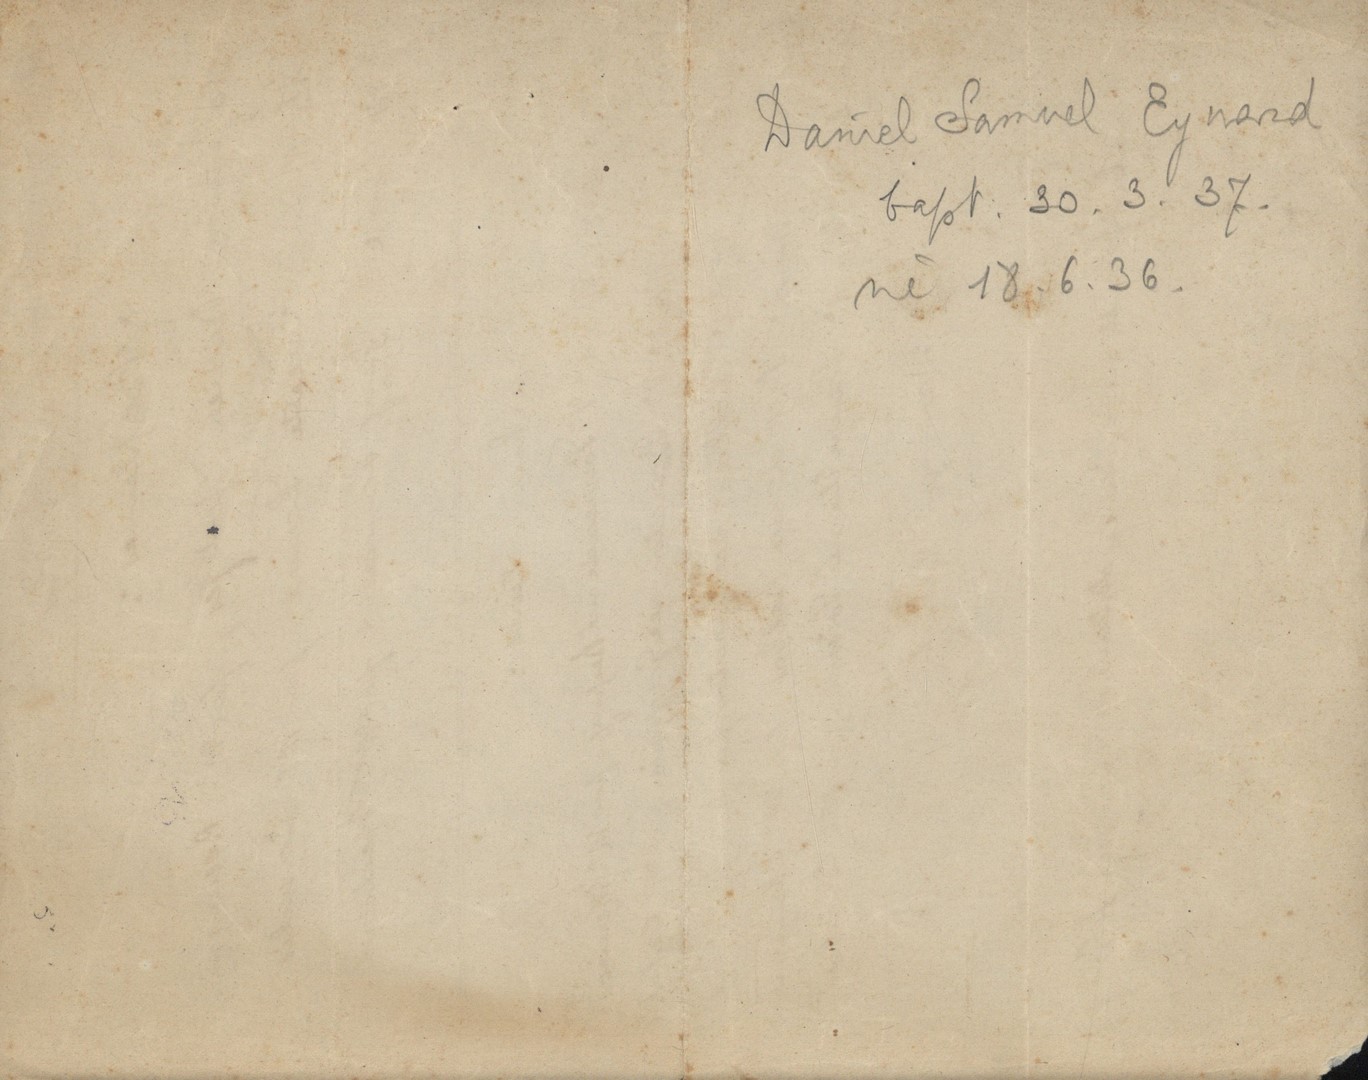 Daniel Samuel Eynard
bapt. 30. 3. 37.
né 18. 6. 36.